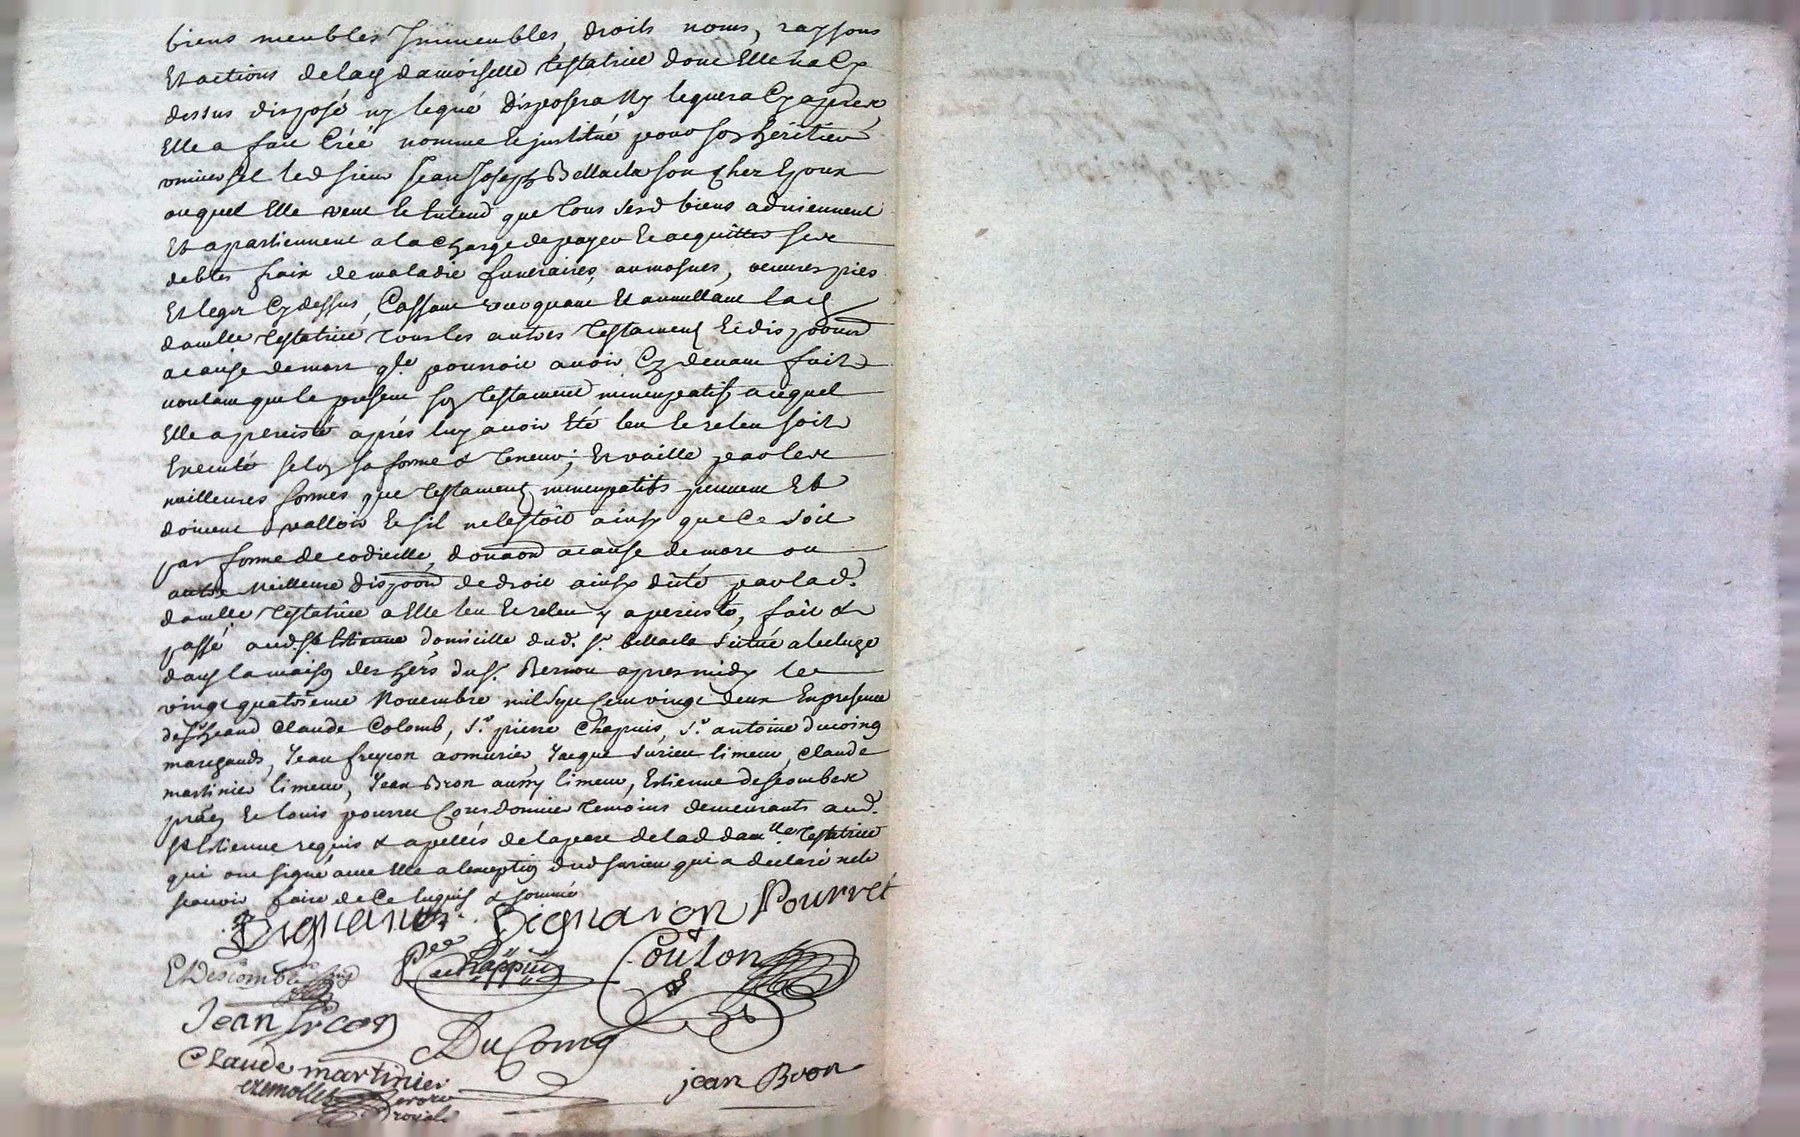 biens meubles Immeubles, droits noms, raysons
Et actions de lad damoiselle testatrice dont Elle na Cy
dessus disposé ny legué disposera Ny leguera Cy apres
Elle a fait Créé nomme & institué pour son héritier
universel led sieur Jean Joseph Bellacla son cher Epoux
auquel Elle veut & Entend que tous sesd biens adviennent
Et apartiennent a la charge de payer & acquitter ses
debtes fraix de maladie funeraires, aumosnes, oeuvres pies
Et legs Cy dessus, Cassant revoquant Et annullant lad
damlle testatrice tous les autres testament & dispoons
a cause de mort qle pourroit avoir Cy devant fait
voulant que le present son testament nuncupatif auquel
Elle a persisté aprés luy avoir Eté leu & releu soit
Executé selon sa forme & teneur; Et vaille par les
meilleures formes que testament nuncupatifs peuvent Et
doivent valloir & sil ne lestoit ainsy que Ce soit
par forme de codicille, donaon a cause de mort ou
autre Meilleure dispoon de droit ainsy dicté par lad.
damlle testatrice a Elle leu & releu y a persisté, fait &
passé aud. St Etienne domicille dud. Sr. Bellacla Scitué
dans la maison des hers du sr. Bernou apres midy le
vingt quatrieme Novembre mil Sept Cent vingt deux En presence
de Claude Colomb, Sr. pierre Chapuis, Sr. antoine ducoing
marchands, Jean freycon armurier, Jacque Surieu limeur, Claude
martinier limeur, Jean Bron aussy limeur, Estienne descombes
& Louis pourret Cordonnier temoins demeurants aud.
St Estienne requis & apellés de la part de lad damlle testatrice
qui ont signé avec Elle a lexception dud Surieu qui a declaré ne le
scavoir faire de Ce Enquis & sommé
Pourret
E Descombes
Chappuis
Coulon
Jean
DuCoing
Claude martinier
jean Bron
royale